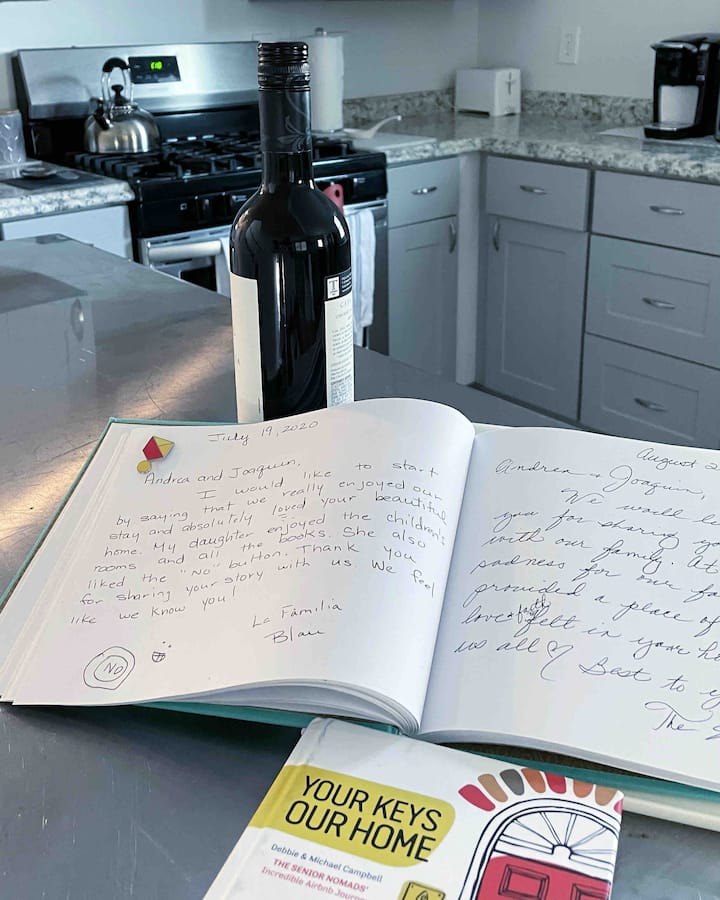 July 19, 2020
Andrea and Joaquin,
I would like to start
by saying that we really enjoyed our
stay and absolutely loved your beautiful
home. My daughter enjoyed the children's
rooms and all the books. She also
liked the "No" button. Thank you
for sharing your story with us. We feel
like we know you!
La Familia
Blau
NO
August 2
Andrea & Joaquin,
We would li
you for sharing yo
with our family. At
sadness for our fa
provided a place of
love & faith felt in your h
us all ♡ Best to y
The S
YOUR KEYS
OUR HOME
Debbie & Michael Campbell
THE SENIOR NOMADS'
Incredible Airbnb Journ